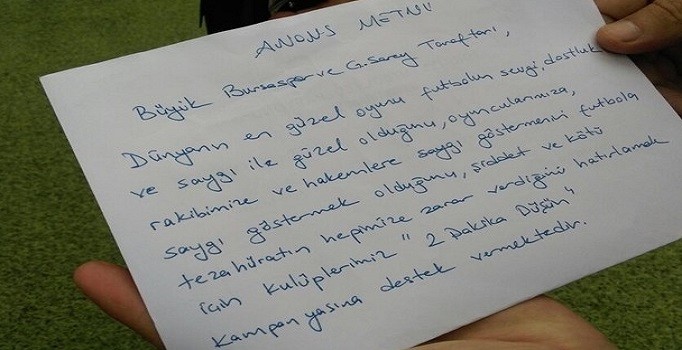 ANONS METNİ
Büyük Bursaspor ve G.Saray Taraftarı,
Dünyanın en güzel oyunu futbolun sevgi, dostluk
ve saygı ile güzel olduğunu, oyuncularımıza,
rakibimize ve hakemlere saygı göstermenin futbola
saygı göstermek olduğunu, şiddet ve kötü
tezahüratın hepimize zarar verdiğini hatırlamak
için kulüplerimiz "2 Dakika Düşün"
kampanyasına destek vermektedir.